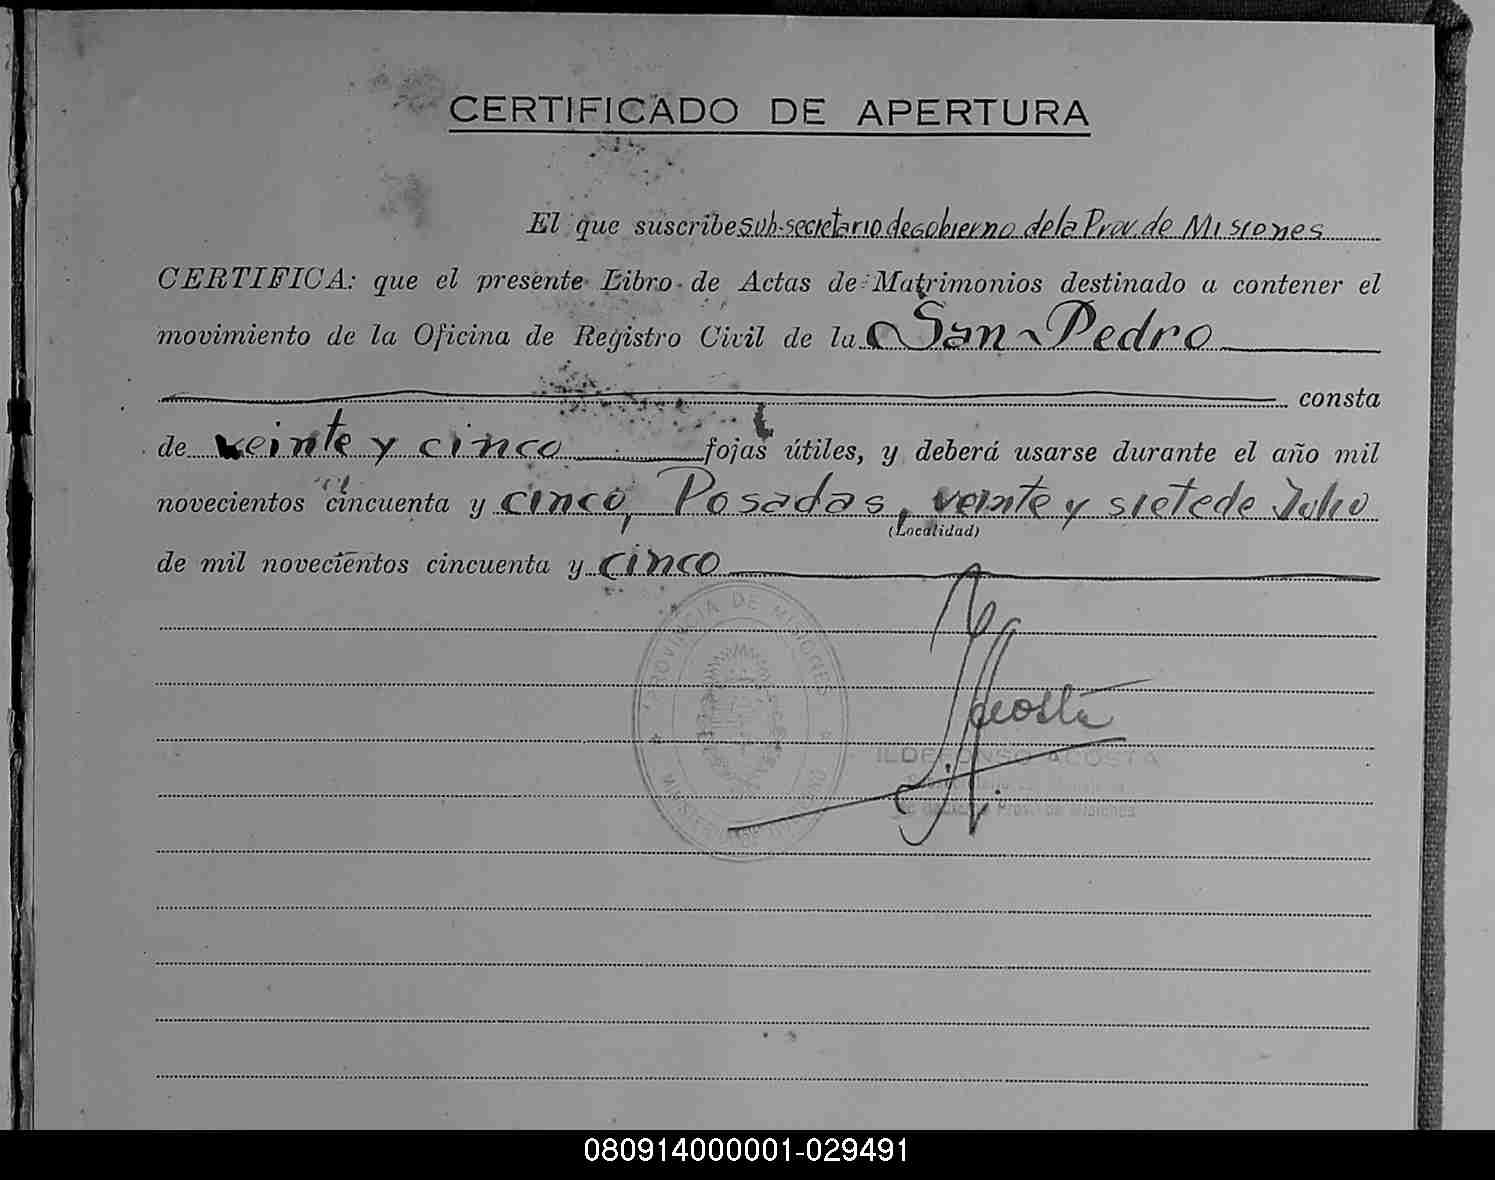 CERTIFICADO DE APERTURA
El que suscribe sub-secretario de Gobierno de la Prov. de Misiones
CERTIFICA: que el presente Libro de Actas de Matrimonios destinado a contener el
movimiento de la Oficina de Registro Civil de la San Pedro
consta
de veinte y cinco fojas útiles, y deberá usarse durante el año mil
novecientos cincuenta y cinco, Posadas, veinte y siete de Julio
(Localidad)
de mil novecientos cincuenta y cinco
PROVINCIA DE MISIONES
Acosta
ILDEFONSO ACOSTA
080914000001-029491